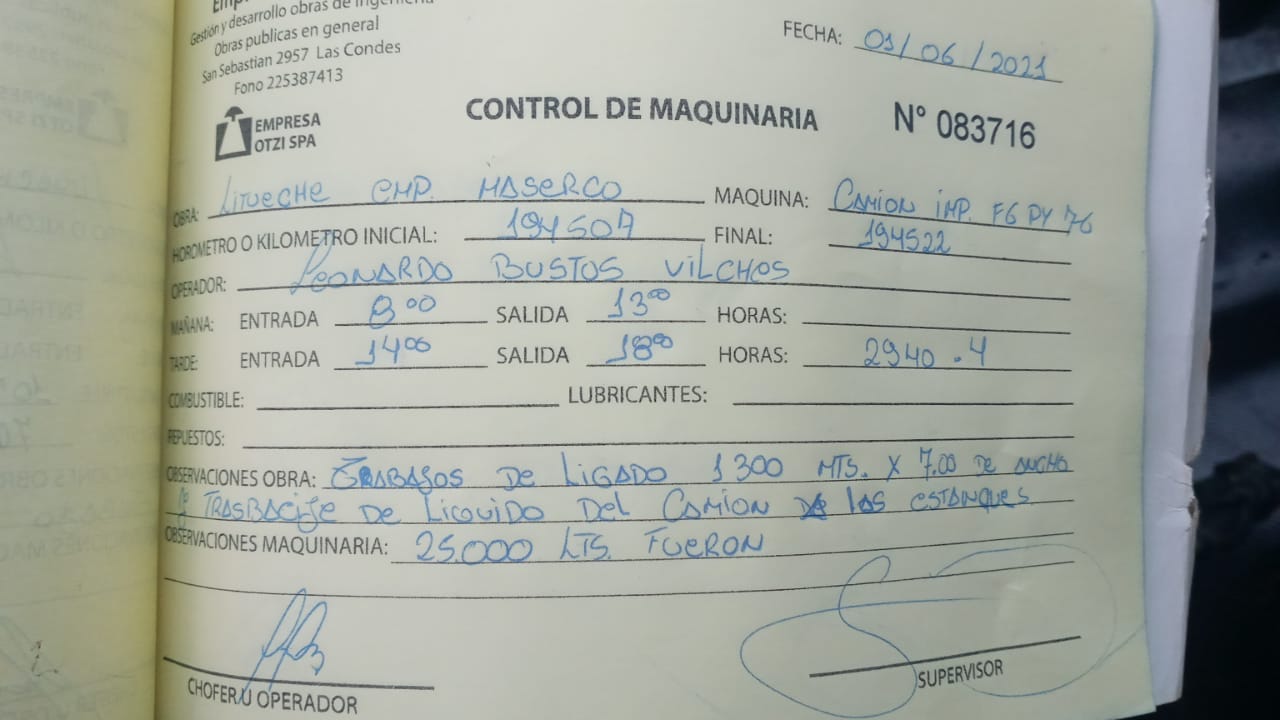 Gestión y desarrollo obras de ingeniería
Obras publicas en general
San Sebastian 2957 Las Condes
Fono 225387413
EMPRESA
OTZI SPA
FECHA: 01/06/2021
CONTROL DE MAQUINARIA N° 083716
OBRA: LITUECHE EMP. MASERCO MAQUINA: CAMION IMP. FG PY 76
HOROMETRO O KILOMETRO INICIAL: 194507 FINAL: 194522
OPERADOR: LEONARDO BUSTOS VILCHES
MAÑANA: ENTRADA 8 00 SALIDA 13 00 HORAS:
TARDE: ENTRADA 14 00 SALIDA 18 00 HORAS: 2940.4
COMBUSTIBLE: LUBRICANTES:
REPUESTOS:
OBSERVACIONES OBRA: TRABAJOS DE LIGADO 1300 MTS. X 7.00 DE ANCHO
DE LIQUIDO DEL CAMION LOS ESTANQUES
OBSERVACIONES MAQUINARIA: 25.000 LTS. FUERON
CHOFER U OPERADOR
SUPERVISOR